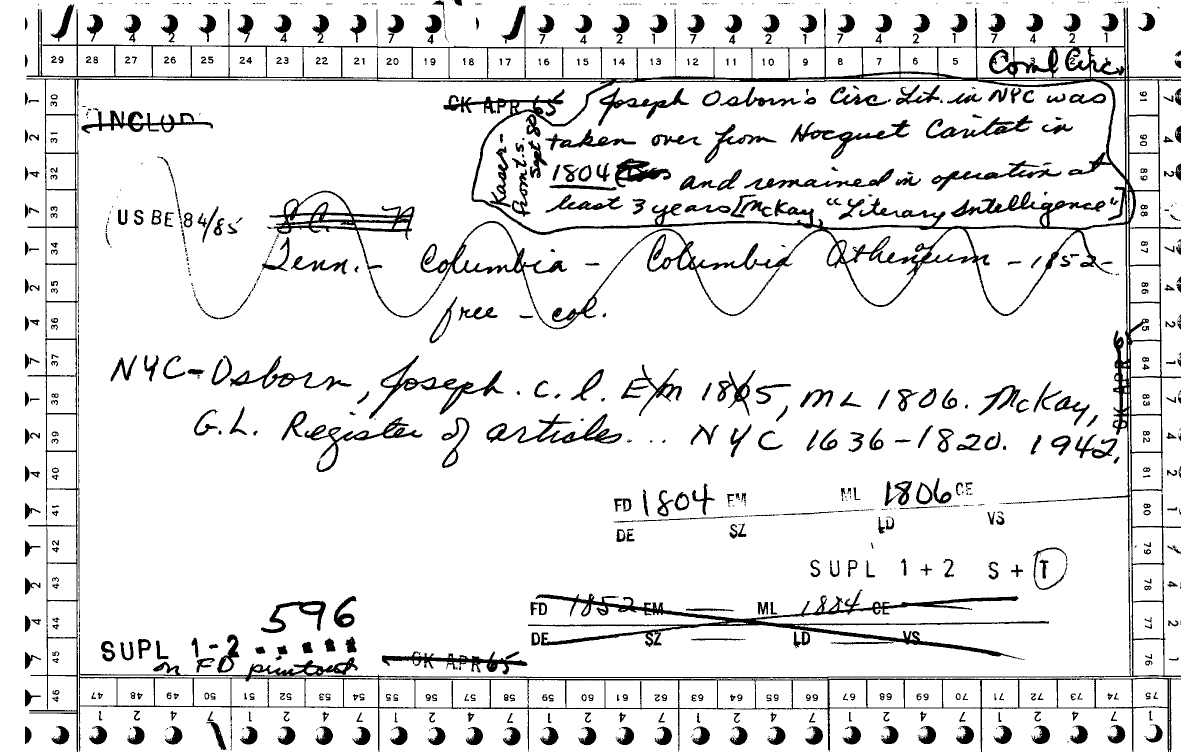 7 4 2 1 7 4 2 1 7 4 1 7 4 2 1 7 4 2 1 7 4 2 1
29 28 27 26 25 24 23 22 21 20 19 18 17 16 15 14 13 12 11 10 9 8 7 6 5 Coml Circ.
CK APR 65 Joseph Osborn's Circ. Lib. in NYC was
INCLUD
taken over from Hocquet Caritat in
Kaser-
from L.S.
Sept 80
1804 and remained in operation at
least 3 years [McKay, "Literary Intelligence"]
USBE 84/85 S.C. - N
Tenn. - Columbia - Columbia Atheneum - 1852 -
free - col.
NYC - Osborn, Joseph. c.l. EM 1805, ML 1806. McKay,
G.L. Register of articles... NYC 1636-1820. 1942.
FD 1804 EM ML 1806 CE
DE SZ LD VS
SUPL 1+2 S+T
FD 1852 EM — ML 1884 CE —
DE SZ — LD VS
596
SUPL 1-2
on FD printout
CK APR 65
30 31 32 33 34 35 36 37 38 39 40 41 42 43 44 45 46
91 90 89 88 87 86 85 84 83 82 81 80 79 78 77 76 75
47 48 49 50 51 52 53 54 55 56 57 58 59 60 61 62 63 64 65 66 67 68 69 70 71 72 73 74
1 2 4 7 1 2 4 7 1 2 4 7 1 2 4 7 1 2 4 7 1 2 4 7 1 2 4 7 1